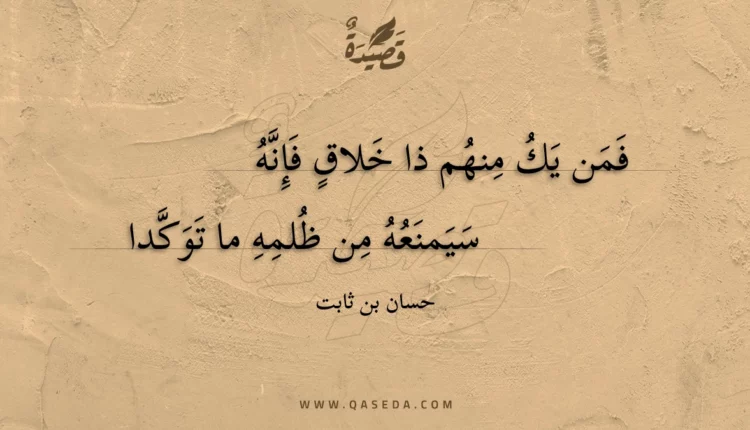 قَصِيدَةٌ
فَمَن يَكُ مِنهُم ذا خَلاقٍ فَإِنَّهُ
سَيَمنَعُهُ مِن ظُلمِهِ ما تَوَكَّدا
حسان بن ثابت
WWW.QASEDA.COM